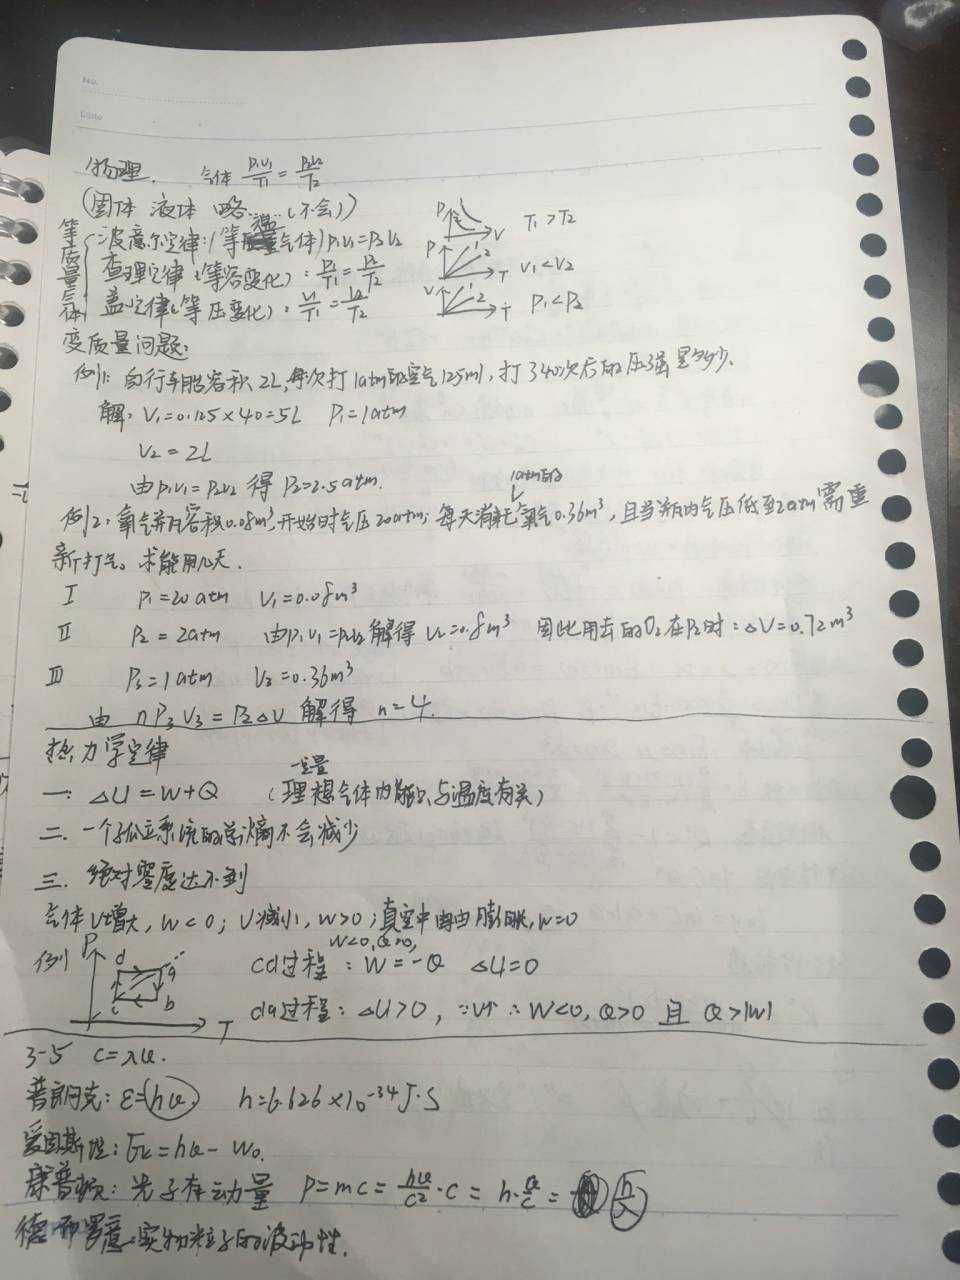 No.
Date
物理. 气体 P₁V₁/T₁ = P₂V₂/T₂
(固体 液体 略……(不会))
等质量气体
波意尔定律:(等温气体) P₁V₁=P₂V₂ P V T₁>T₂
查理定律(等容变化): P₁/T₁ = P₂/T₂ P 1 2 T V₁<V₂
盖定律(等压变化): V₁/T₁ = V₂/T₂ V 1 2 T P₁<P₂
变质量问题:
例1: 自行车胎容积2L,每次打1atm的空气125ml,打40次后的压强是多少.
解: V₁=0.125×40=5L P₁=1atm
V₂=2L
由P₁V₁=P₂V₂ 得 P₂=2.5atm.
例2: 氧气瓶内容积0.08m³,开始时气压20atm; 每天消耗1atm的氧气0.36m³, 且当瓶内气压低至2atm需重
新打气。求能用几天.
I P₁=20atm V₁=0.08m³
II P₂=2atm 由P₁V₁=P₂V₂解得 V₂=0.8m³ 因此用去的O₂在P₂时: △V=0.72m³
III P₃=1atm V₃=0.36m³
由 nP₃V₃=P₂△V 解得 n=4.
热力学定律
一: △U=W+Q (一定量理想气体内能只与温度有关)
二. 一个孤立系统的总熵不会减少
三. 绝对零度达不到
气体V增大, W<0; V减小, W>0; 真空中自由膨胀, W=0
例 P d a c b T
W<0, Q>0,
cd过程: W=-Q △U=0
da过程: △U>0, ∵V↑ ∴W<0, Q>0 且 Q>|W|
3-5 C=λν.
普朗克: ε=hν. h=6.626×10⁻³⁴J·S
爱因斯坦: Ek=hν-W₀.
康普顿: 光子有动量 P=mc=hν/c²·c=h·ν/c=h/λ
德布罗意: 实物粒子的波动性.